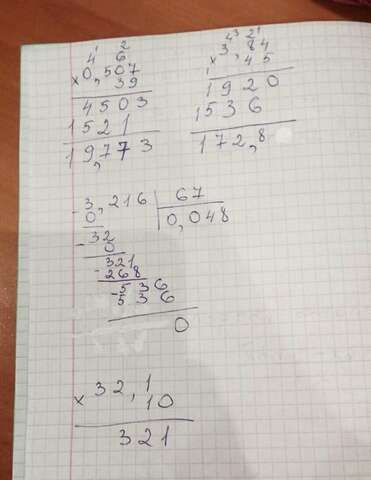 1 2
4 6
0,507
× 39
4503
1521
19,773
43 21
3,84
× 45
1920
1536
172,8
- 3,216 | 67
0 0,048
- 32
0
- 321
268
- 536
536
0
32,1
× 10
321